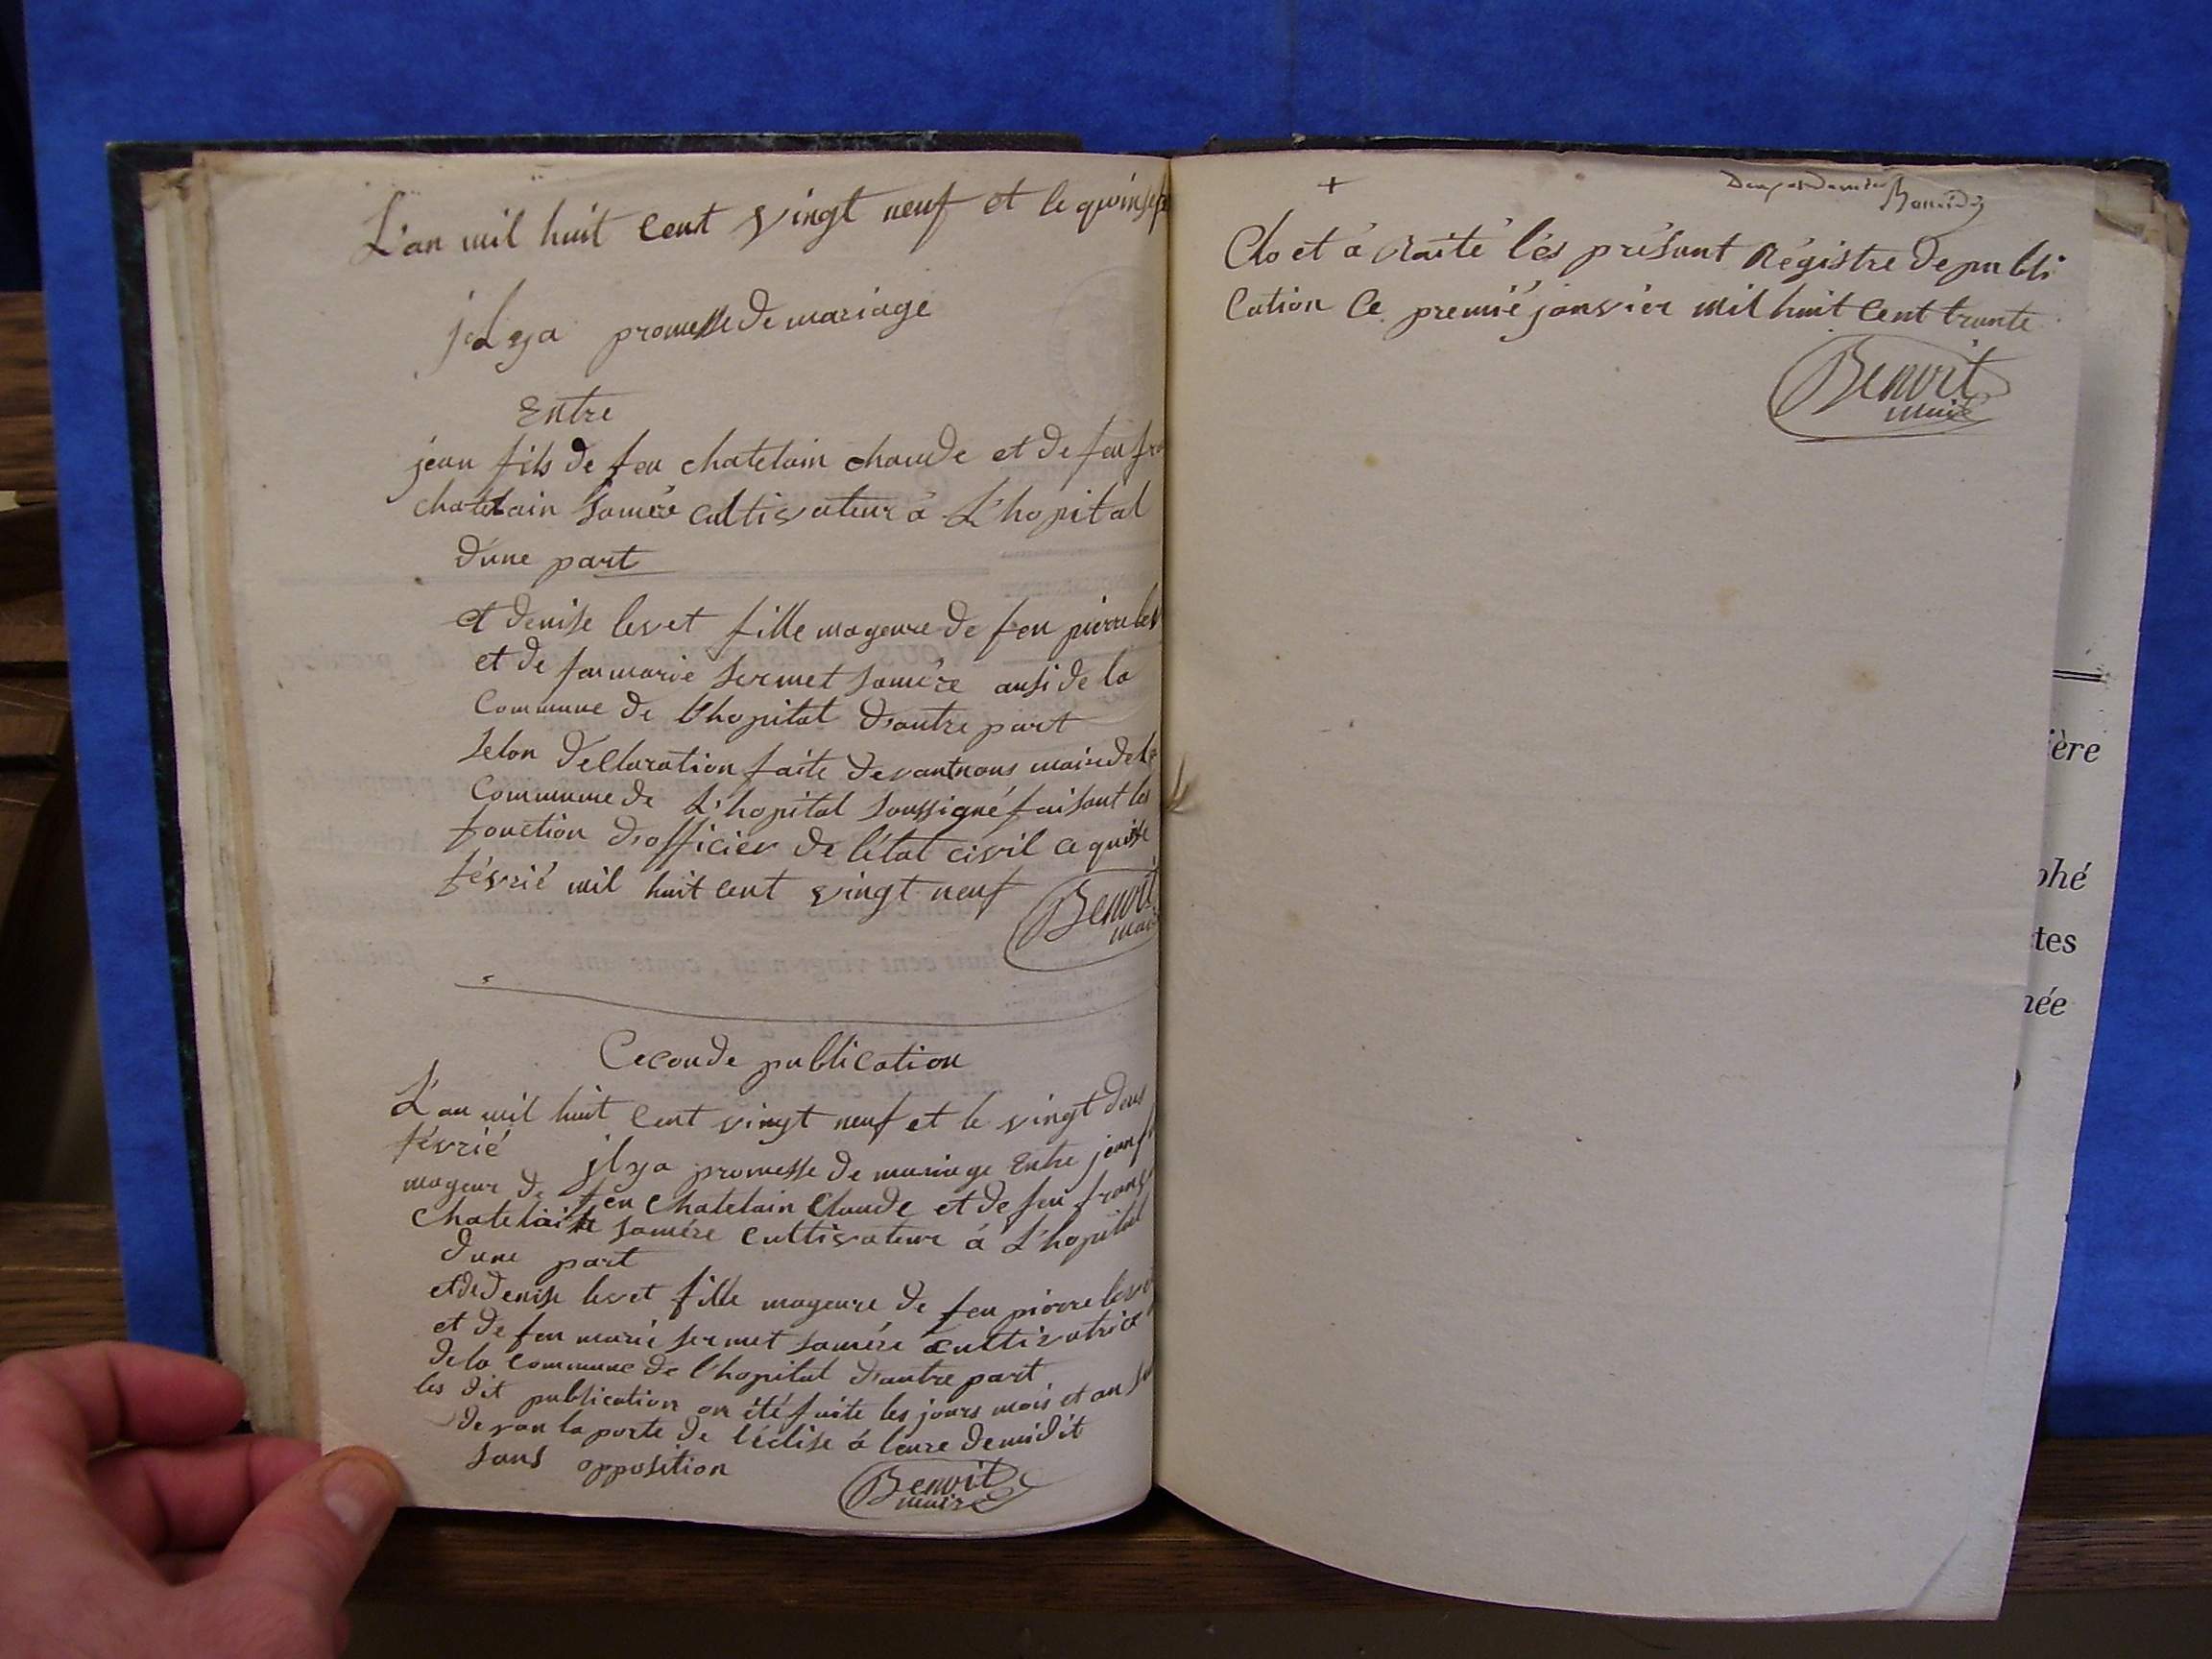 L'an mil huit cent vingt neuf et le quinse
jl ya promesse de mariage
Entre
jean fils de feu chatelain claude et de feu fra
chatelain samére cultivateur á L'hopital
d'une part
et denise levet fille mageure de feu pierre lev
et de feu marie sermet samére ausi de la
Commune de l'hopital d'autre part
selon déclaration faite devant nous maire de la
Commune de L'hopital soussigné faisant les
fonction d'officier de létat civil ce quinse
févrié mil huit cent vingt neuf
Benoit
maire
Ceconde publication
L'an mil huit Cent vingt neuf et le vingt deus
févrié jl ya promesse de mariage Entre jean f
mageur de feu Chatelain Claude et de feu franç
Chatelain samére Cultivateur á L'hopital
dune part
et de denise levet fille mageure de feu pierre leve
et de feu marie sermet samére Cultivatrice
de la commune de l'hopital d'autre part
les dit publication on été faite les jours mois et an
devan la porte de léclise á leure de midit
sans opposition
Benoit
maire
+
Clo et á Raité lés présant Régistre de publi
Cation Ce premié janvier mil huit Cent trante
Benoit
maire
ère
phé
tes
née